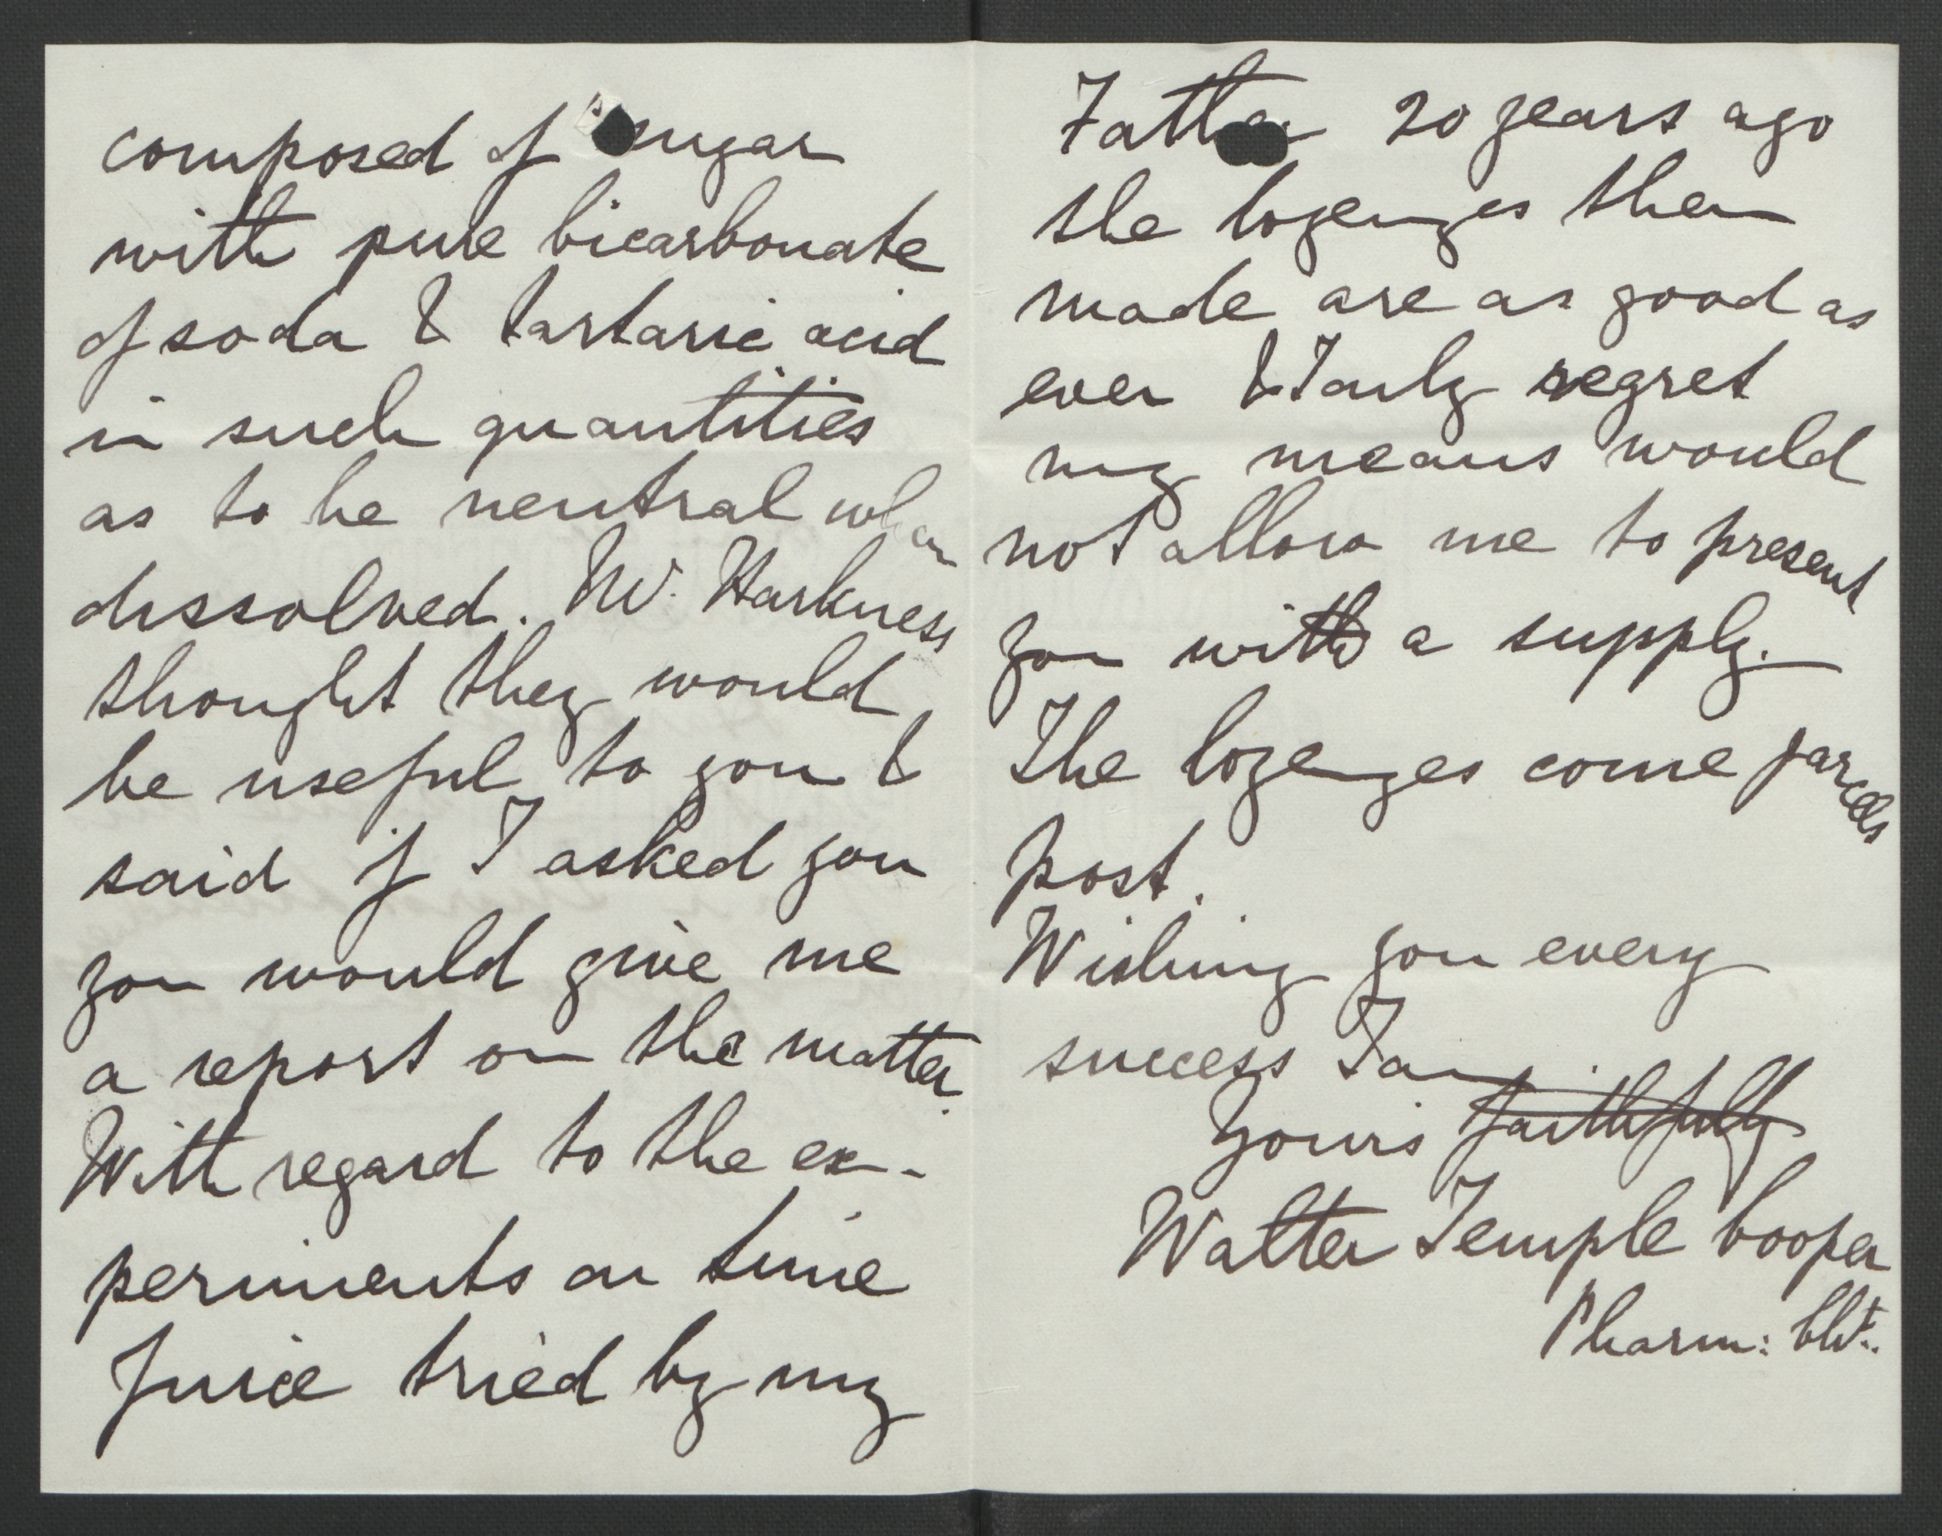 composed of sugar
with pure bicarbonate
of soda & tartaric acid
in such quantities
as to be neutral when
dissolved. Mr. Harkness
thought they would
be useful to you &
said if I asked you
you would give me
a report on the matter.
With regard to the ex-
periments on lime
Juice tried by my
Father 20 years ago
the lozenges then
made are as good as
ever & I only regret
my means would
not allow me to present
you with a supply.
The lozenges come parcels
post.
Wishing you every
success I am
Yours faithfully
Walter Temple Cooper
Pharm: Cht.